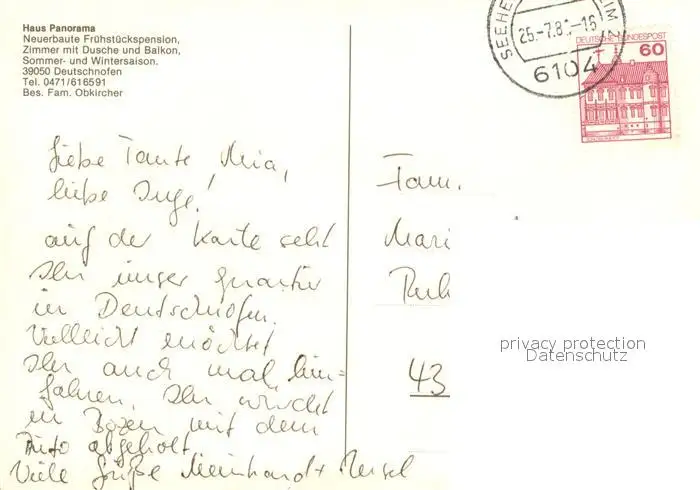 Haus Panorama
Neuerbaute Frühstückspension,
Zimmer mit Dusche und Balkon,
Sommer- und Wintersaison.
39050 Deutschnofen
Tel. 0471/616591
Bes. Fam. Obkircher
SEEHEI
25.-7.8
-16
6104
DEUTSCHE BUNDESPOST
60
Liebe Tante Mia,
liebe Inge!
auf der Karte seht
Ihr unser Quartier
in Deutschnofen.
Vielleicht möchtet
Ihr auch mal hin-
fahren. Ihr würdet
in Bozen mit dem
Auto abgeholt.
Viele Grüße Meinhard +
Fam.
Mari
Ruh
43
privacy protection
Datenschutz